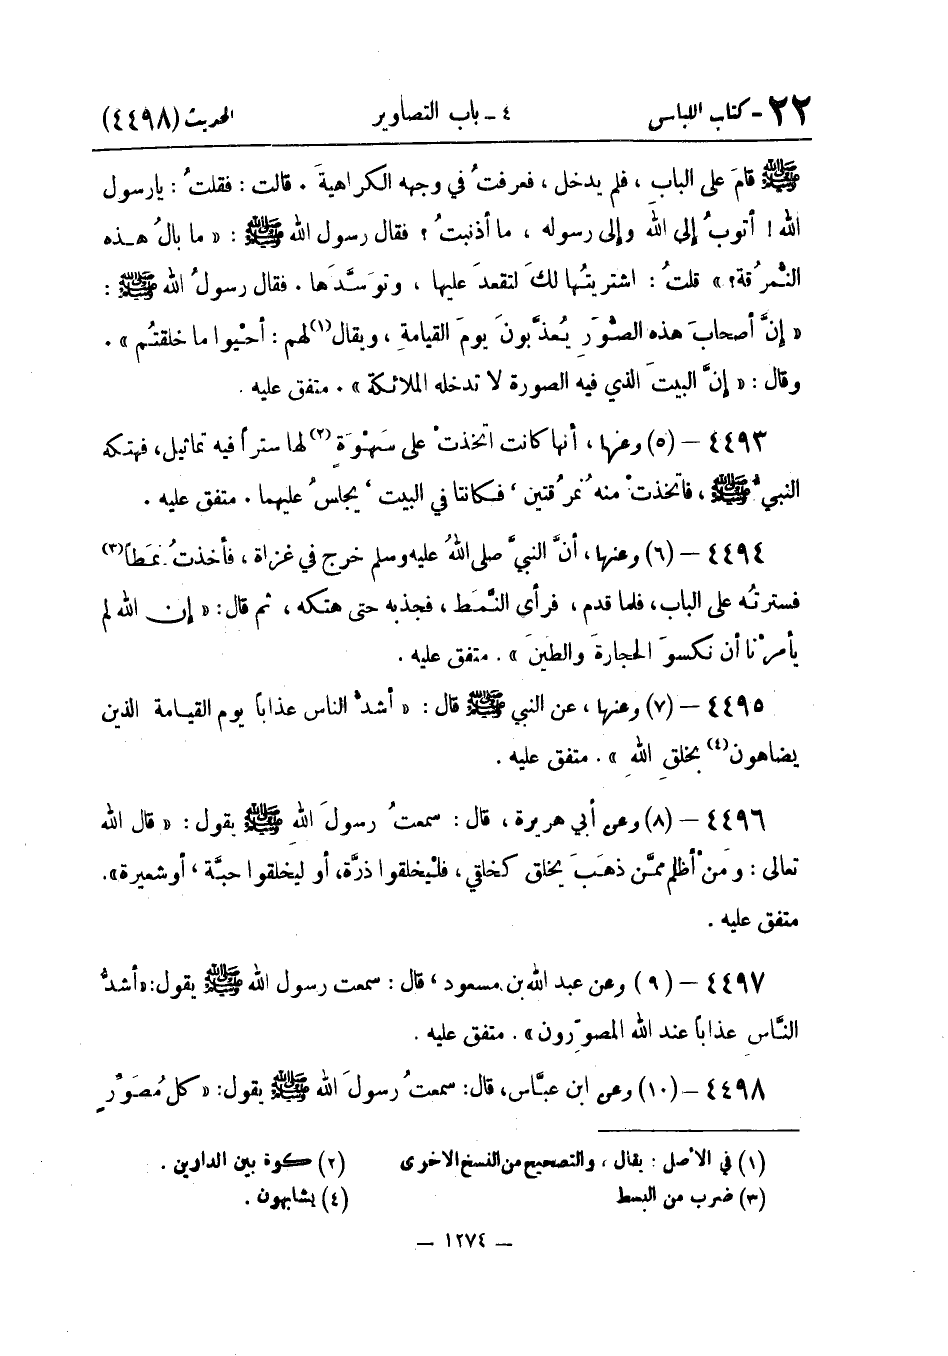 ٢٢ - كتاب اللباس ٤ - باب التصاوير الحديث (٤٤٩٨)
ﷺ قامَ على البابِ ، فلم يدخل ، فعرفتُ في وجهه الكراهيةَ . قالت : فقلتُ : يارسول
الله ! أتوبُ إلى الله وإلى رسوله ، ما أذنبتُ ؟ فقال رسول الله ﷺ : « ما بالُ هـذه
النُّمرُقة؟ » قلتُ : اشتريتُها لكَ لتقعدَ عليها ، وتوَسَّدَها . فقال رسولُ الله ﷺ :
« إنَّ أصحابَ هذه الصُّوَرِ يُعذَّبونَ يومَ القيامةِ ، ويقال(١) لهم : أحْيوا ما خلقتُم » .
وقال : « إنَّ البيتَ الذي فيه الصورة لا تدخله الملائكة » . متفق عليه .
٤٤٩٣ – (٥) وعنها ، أنها كانت اتخذتْ على سَهْوَةٍ(٢) لها ستراً فيه تماثيل، فهتكه
النبيُّ ﷺ ، فاتخذتْ منه نُمرُقتين ، فكانتا في البيت ، يجلسُ عليهما . متفق عليه .
٤٤٩٤ – (٦) وعنها، أنَّ النبيَّ صلى اللهُ عليه وسلم خرج في غزاة ، فأخذتُ نمَطاً(٣)
فسترتُه على الباب، فلما قدم ، فرأى النَّمَط ، فجذبه حتى هتكه ، ثم قال : « إن الله لم
يأمرْنا أن نكسوَ الحجارةَ والطينَ » . متفق عليه .
٤٤٩٥ – (٧) وعنها ، عن النبي ﷺ قال : « أشدُّ الناس عذاباً يوم القيـامة الذين
يضاهون(٤) بخلقِ اللهِ » . متفق عليه .
٤٤٩٦ – (٨) وعن أبي هريرة ، قال : سمعتُ رسولَ اللهِ ﷺ يقول : « قال الله
تعالى : ومَنْ أظلم ممَّن ذهبَ يخلق كخلقي ، فلْيخلقوا ذرَّة، أو ليخلقوا حبَّة ، أو شعيرة».
متفق عليه .
٤٤٩٧ – (٩) وعن عبد الله بن مسعود ، قال : سمعت رسول الله ﷺ يقول: «أشدُّ
النَّاسِ عذاباً عند الله المصوِّرون» . متفق عليه .
٤٤٩٨ – (١٠) وعن ابن عبَّاس، قال: سمعتُ رسولَ الله ﷺ يقول: « كل مُصَوِّرٍ
(١) في الأصل : يقال ، والتصحيح من النسخ الاخرى (٢) كوة بين الدارين .
(٣) ضرب من البسط (٤) يشابهون .
– ١٢٧٤ –